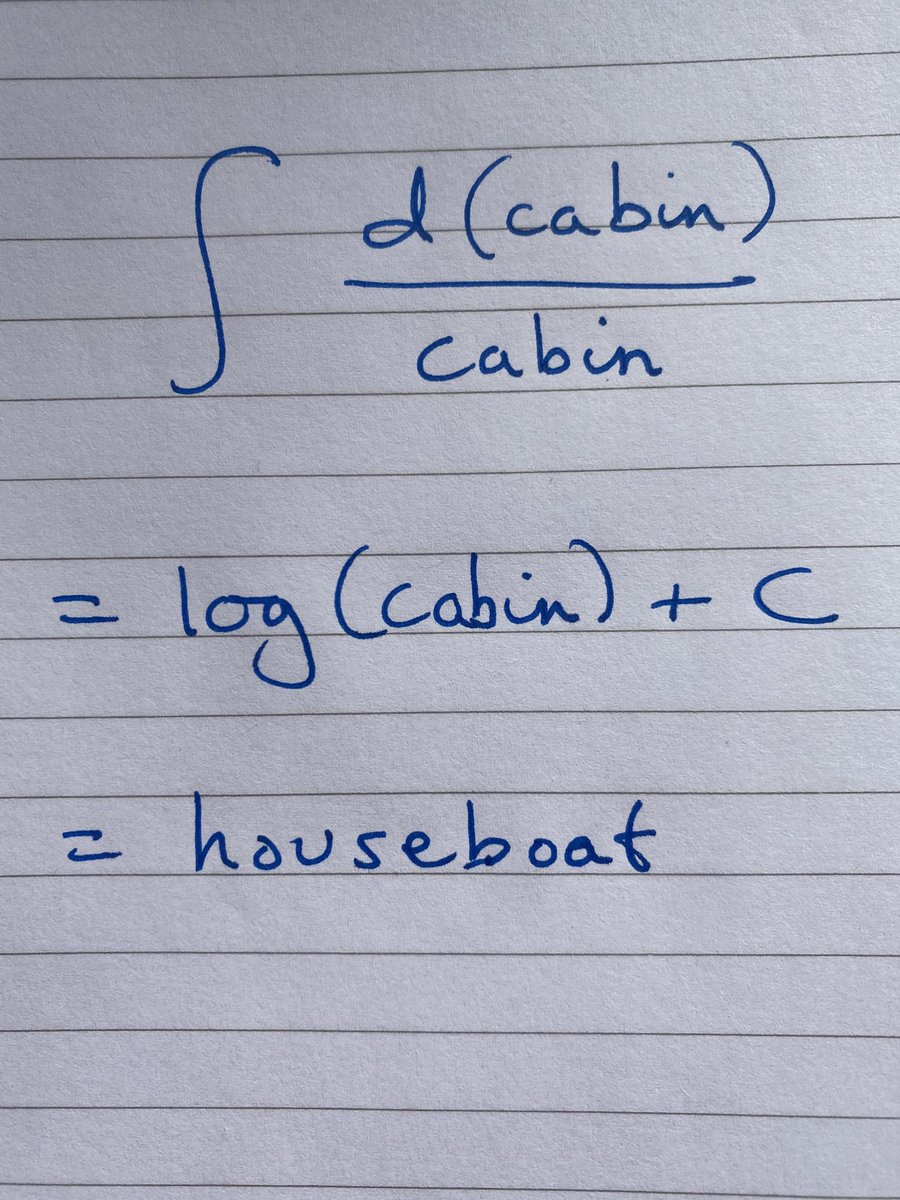 ∫ d(cabin)
cabin
= log(cabin) + C
= houseboat